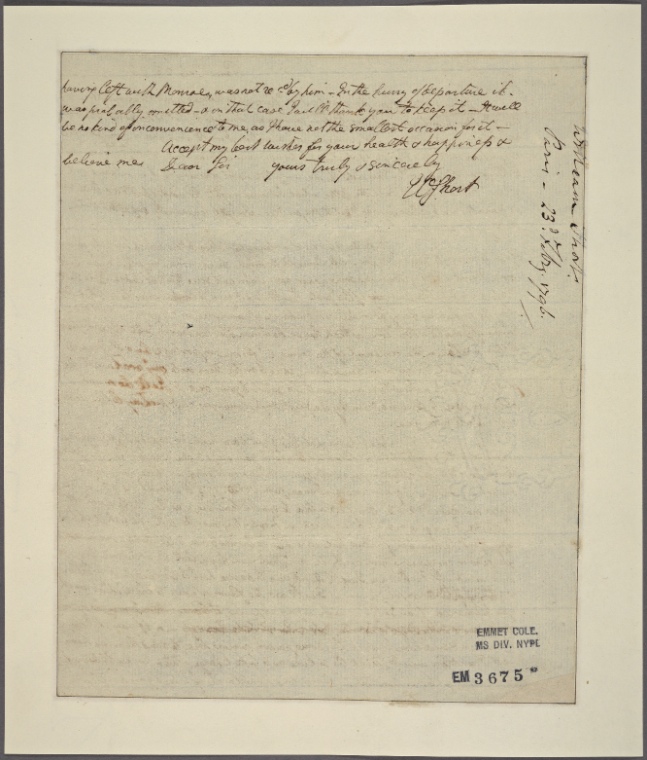 having left with Monroe, was not recd by him - In the hurry of departure it
was probably omitted - & in that case I will thank you to keep it - It will
be no kind of inconvenience to me, as I have not the smallest occasion for it -
Accept my best wishes for your health & happiness &
believe me Dear Sir yours truly & sincerely
W Short
William Short
Paris - 23d Feby. 1796.
EMMET COLL.
MS. DIV. NYPL
EM 3675